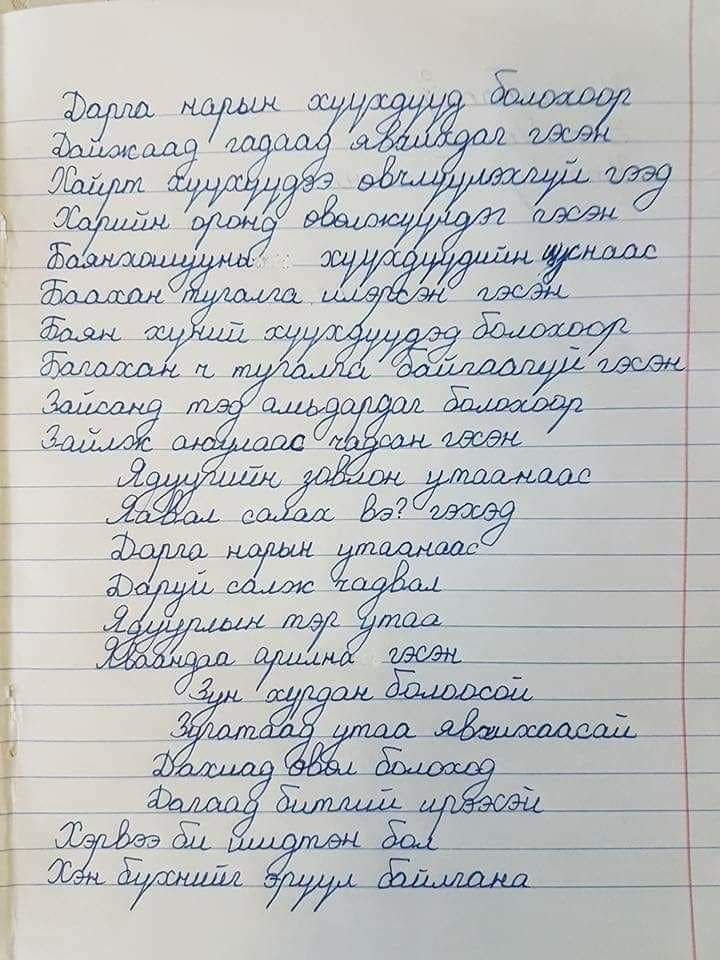 Дарга нарын хүүхдүүд болохоор
Дайжаад гадаад явчихдаг гэсэн
Хайрт хүүхдүүдээ өвчлүүлэхгүй гээд
Харийн оронд өвөлжүүлдэг гэсэн
Баянхошууны хүүхдүүдийн цуснаас
Баахан тугалга илэрсэн гэсэн
Баян хүний хүүхдүүдэд болохоор
Багахан ч тугалга байгаагүй гэсэн
Зайсанд тэд амьдардаг болохоор
Зайлж аюулаас чадсан гэсэн
Ядуугийн зовлон утаанаас
Яавал салах вэ? гэхэд
Дарга нарын утаанаас
Даруй салж чадвал
Ядуурлын тэр утаа
Яваандаа арилна гэсэн
Зун хурдан болоосой
Зугатаад утаа явчихаасай
Дахиад өвөл болоход
Дагаад битгий ирээсэй
Хэрвээ би шидтэн бол
Хэн бүхнийг эрүүл байлгана